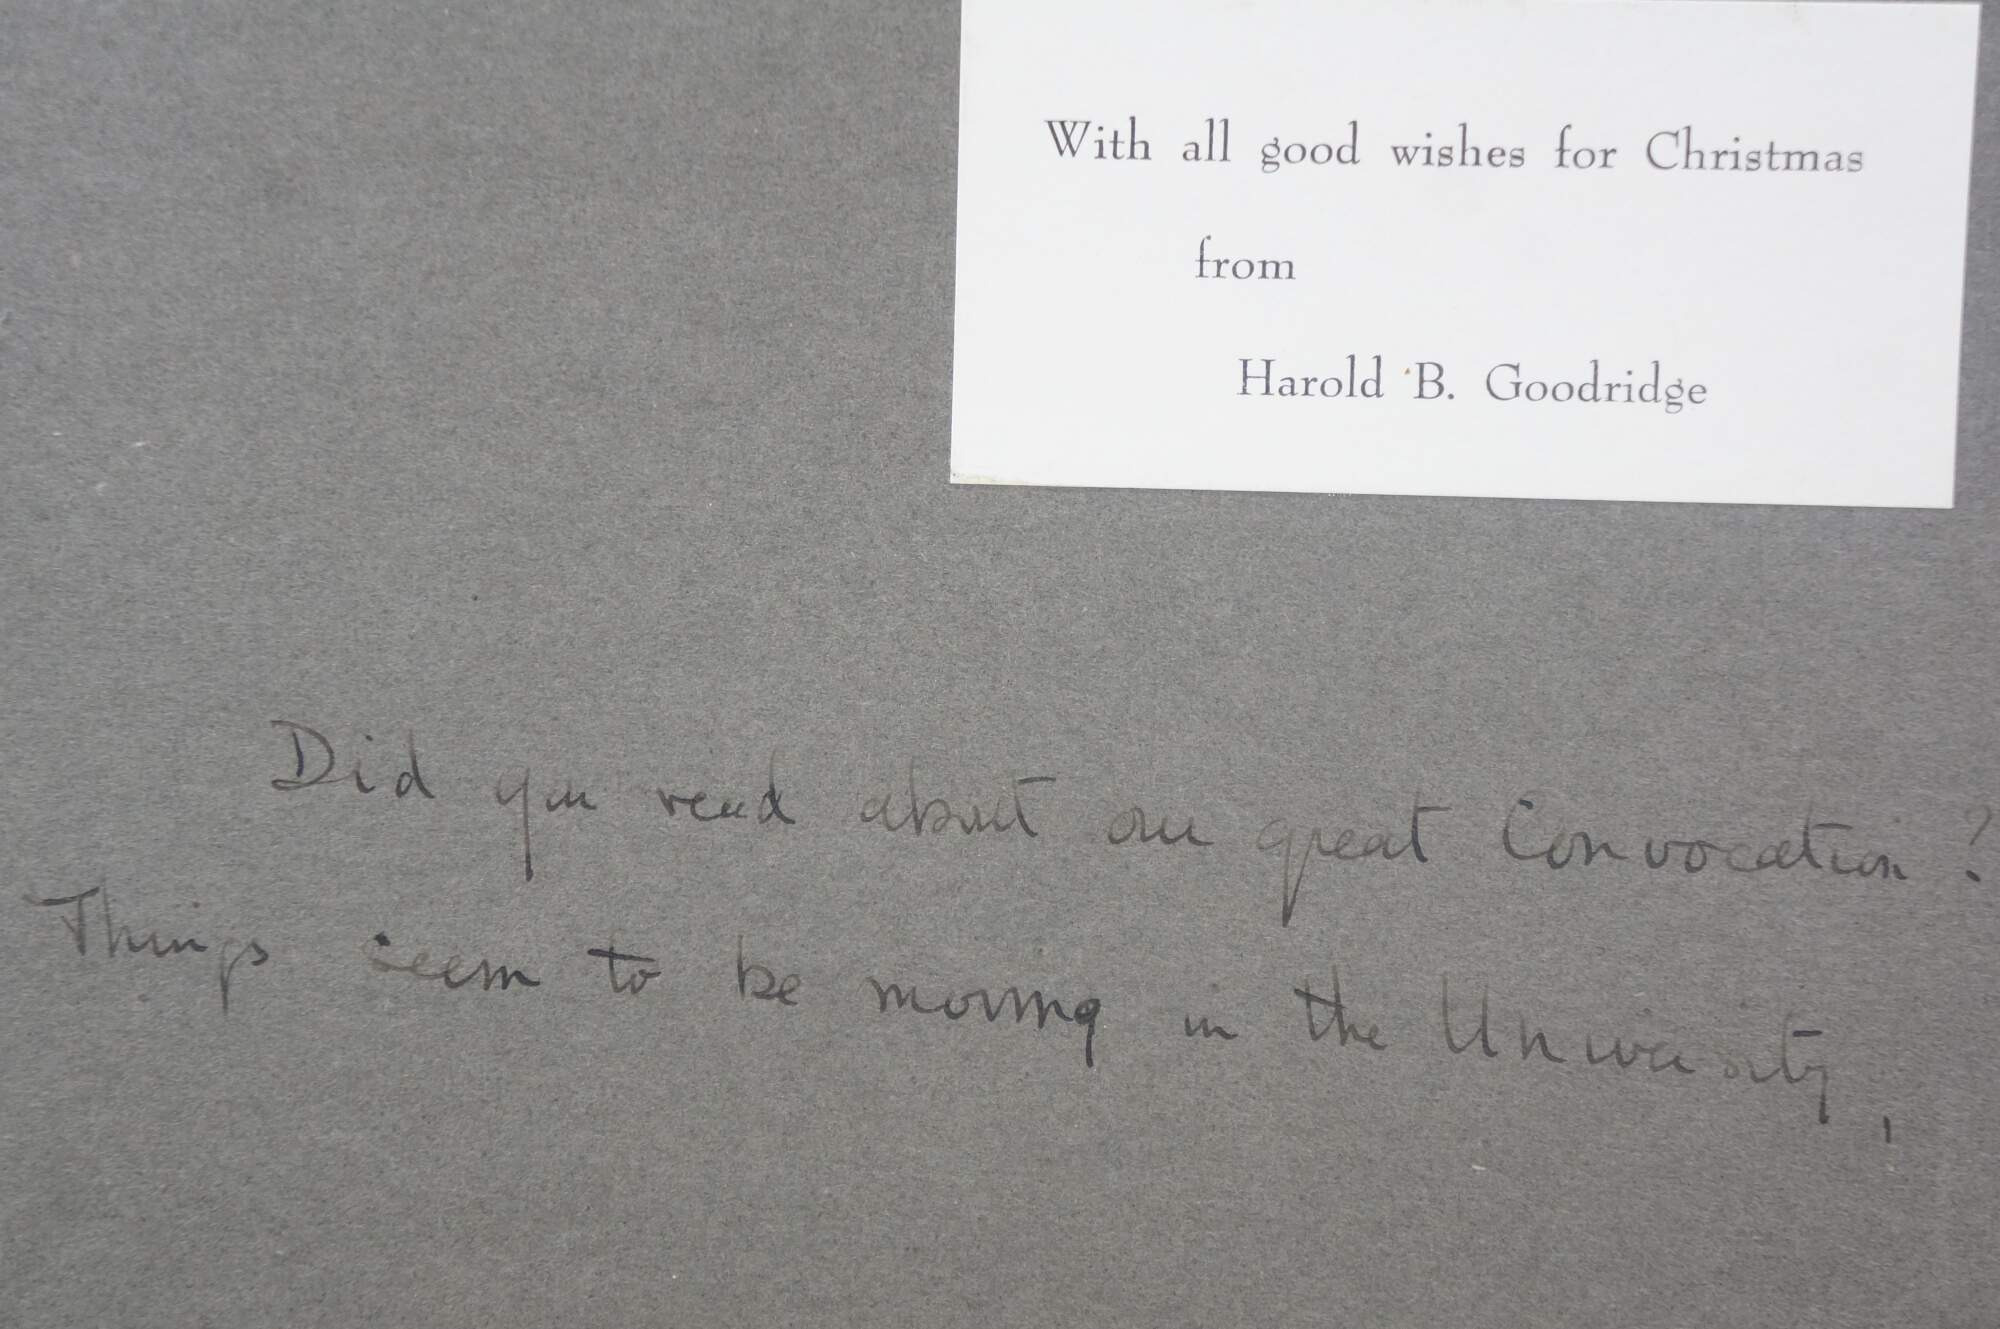 With all good wishes for Christmas
from
Harold B. Goodridge
Did you read about our great Convocation?
Things seem to be moving in the University,